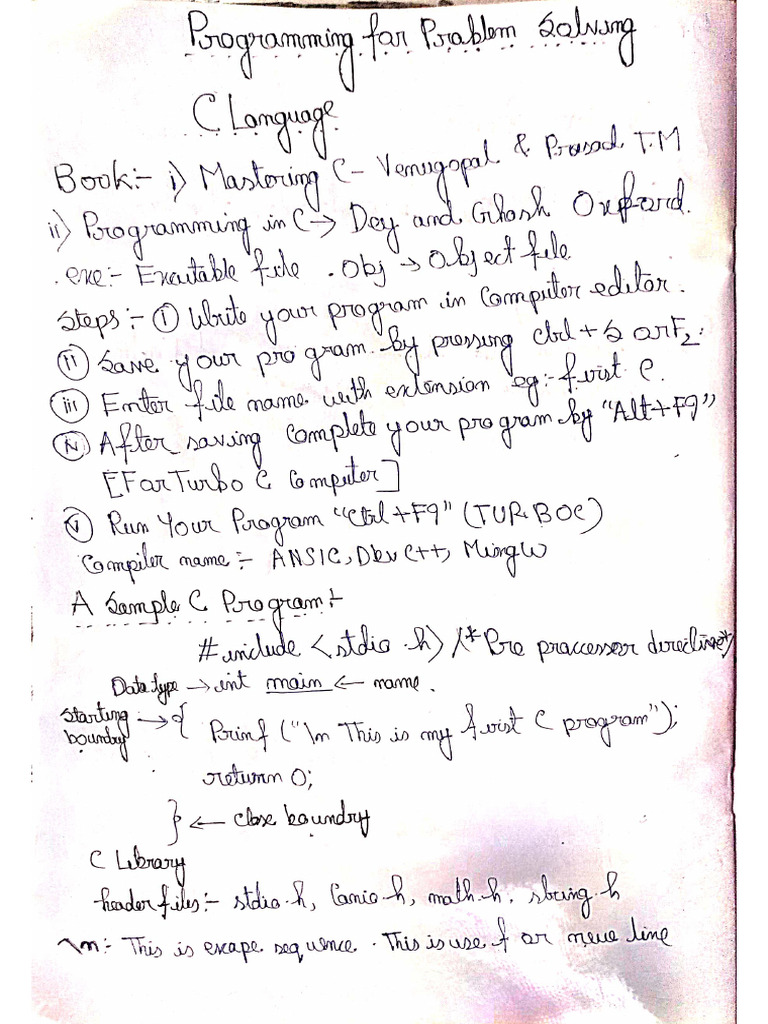 Programming for Problem Solving
C Language
Book:- i) Mastering C- Venugopal & Prasad T.M
ii) Programming in C → Dey and Ghosh Oxford.
.exe:- Excutable file .obj → Object file
Steps:- (i) Write your program in Computer editor.
(ii) Save your program by pressing ctrl+S or F2.
(iii) Enter file name with extension eg:- first C.
(iv) After saving complete your program by "Alt+F9"
[For Turbo C Computer]
(v) Run Your Program "Ctrl+F9" (TURBOC)
Compiler name:- ANSIC, Dev C++, MingW
A Sample C Program:-
#include <stdio.h> /*Pre praccessor directive*/
Data type → int main ← name.
Starting boundry → { Prinf ("\n This is my first C program");
return 0;
} ← close boundry
C Library
header files:- stdio.h, Conio.h, math.h, string.h
\n:- This is escape sequence. This is use for new line